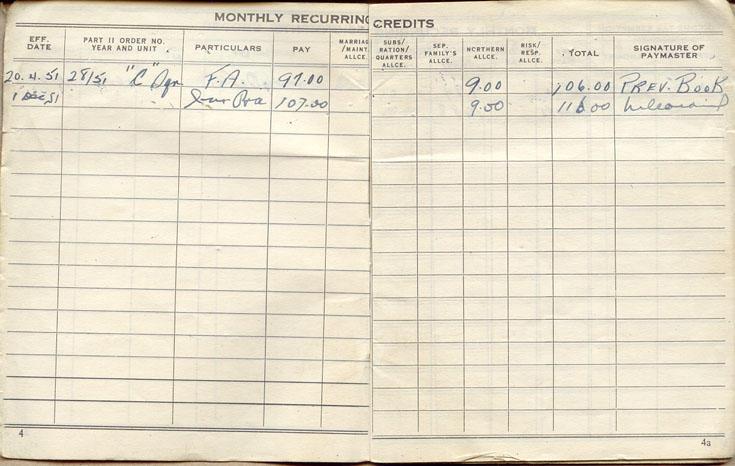 MONTHLY RECURRING CREDITS
EFF. DATE PART II ORDER NO. YEAR AND UNIT PARTICULARS PAY MARRIAG /MAINT. ALLCE. SUBS/ RATION/ QUARTERS ALLCE. SEP. FAMILY'S ALLCE. NORTHERN ALLCE. RISK/ RESP. ALLCE. TOTAL SIGNATURE OF PAYMASTER
20.4.51 28/51 "C" F.A. 97.00 9.00 106.00 PREV. BOOK
1 DEC 51 107.00 9.00 116.00
4 4a